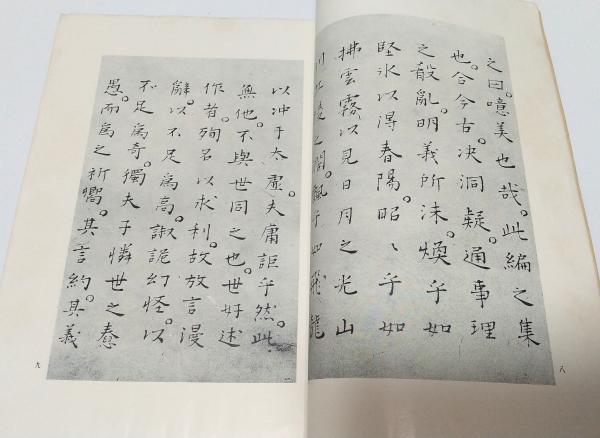 之曰。噫美也哉。此編之集
也。合今古。决洞疑。通事理
之殽亂。明義所沫。煥乎如
堅氷以得春陽。昭〻乎如
拂雲霧以見日月之光山
川 之 乎如飛龍
八
以冲于太虚。夫庸詎乎然。此
無他。不與世同之也。世好述
作者。殉名以求利。故放言漫
辭。以不足爲高。諔詭幻怪。以
不足爲奇。獨夫子憐世之惷
愚。而爲之祈嚮。其言約其義
九